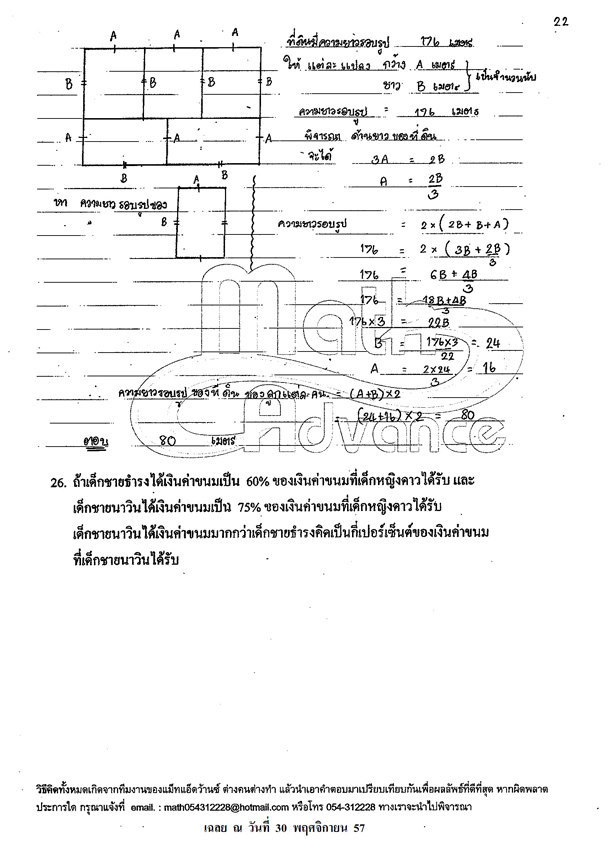 22
A A A
ที่ดินมีความยาวรอบรูป 176 เมตร
ให้ แต่ละแปลง กว้าง A เมตร
ยาว B เมตร
เป็นจำนวนนับ
B B B B
ความยาวรอบรูป = 176 เมตร
พิจารณา ด้านยาวของที่ดิน
A A A
จะได้ 3A = 2B
B B
A = 2B/3
หา ความยาวรอบรูปของ
A
B
ความยาวรอบรูป = 2×(2B+B+A)
176 = 2×(3B+2B/3)
176 = 6B+4B/3
176 = 18B+4B/3
176×3 = 22B
B = 176×3/22 = 24
A = 2×24/3 = 16
ความยาวรอบรูป ของที่ดิน ของลูกแต่ละคน = (A+B)×2
= (24+16)×2 = 80
ตอบ 80 เมตร
Math
Advance
26. ถ้าเด็กชายธำรงได้เงินค่าขนมเป็น 60% ของเงินค่าขนมที่เด็กหญิงดาวได้รับ และ
เด็กชายนาวินได้เงินค่าขนมเป็น 75% ของเงินค่าขนมที่เด็กหญิงดาวได้รับ
เด็กชายนาวินได้เงินค่าขนมมากกว่าเด็กชายธำรงคิดเป็นกี่เปอร์เซ็นต์ของเงินค่าขนม
ที่เด็กชายนาวินได้รับ
วิธีคิดทั้งหมดเกิดจากทีมงานของแม็ทแอ็ดว้านซ์ ต่างคนต่างทำ แล้วนำเอาคำตอบมาเปรียบเทียบกันเพื่อผลลัพธ์ที่ดีที่สุด หากผิดพลาด
ประการใด กรุณาแจ้งที่ email. : math054312228@hotmail.com หรือโทร 054-312228 ทางเราจะนำไปพิจารณา
เฉลย ณ วันที่ 30 พฤศจิกายน 57